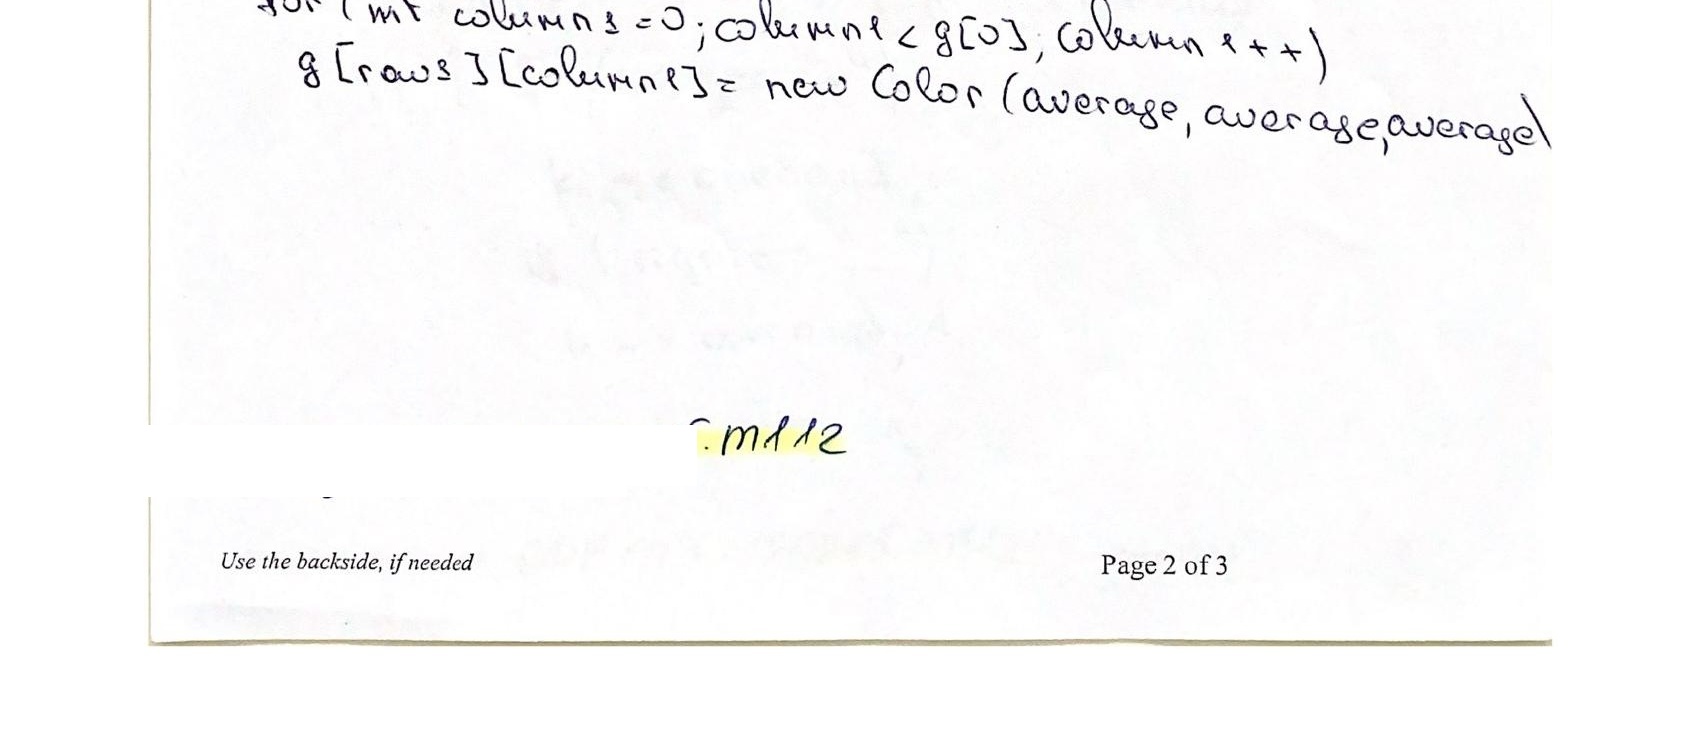 for (int columns=0; columns < g[0]; columns++)
g[rows][columns]= new Color (average, average, average)
m112
Use the backside, if needed
Page 2 of 3